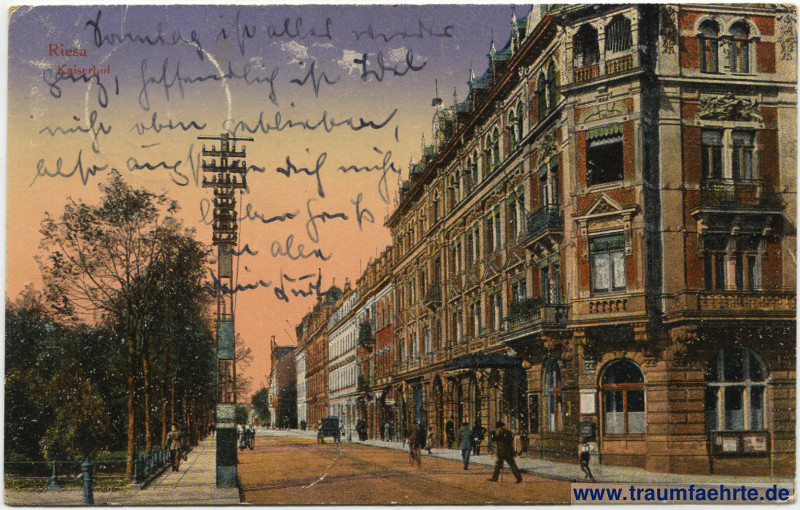 Riesa
Kaiserhof
Sonntag ist alles wieder
ganz, hoffendlich ist
nicht oben geblieben,
also ängstige dich nicht
lieben Gruß
an alle
dein
www.traumfaehrte.de